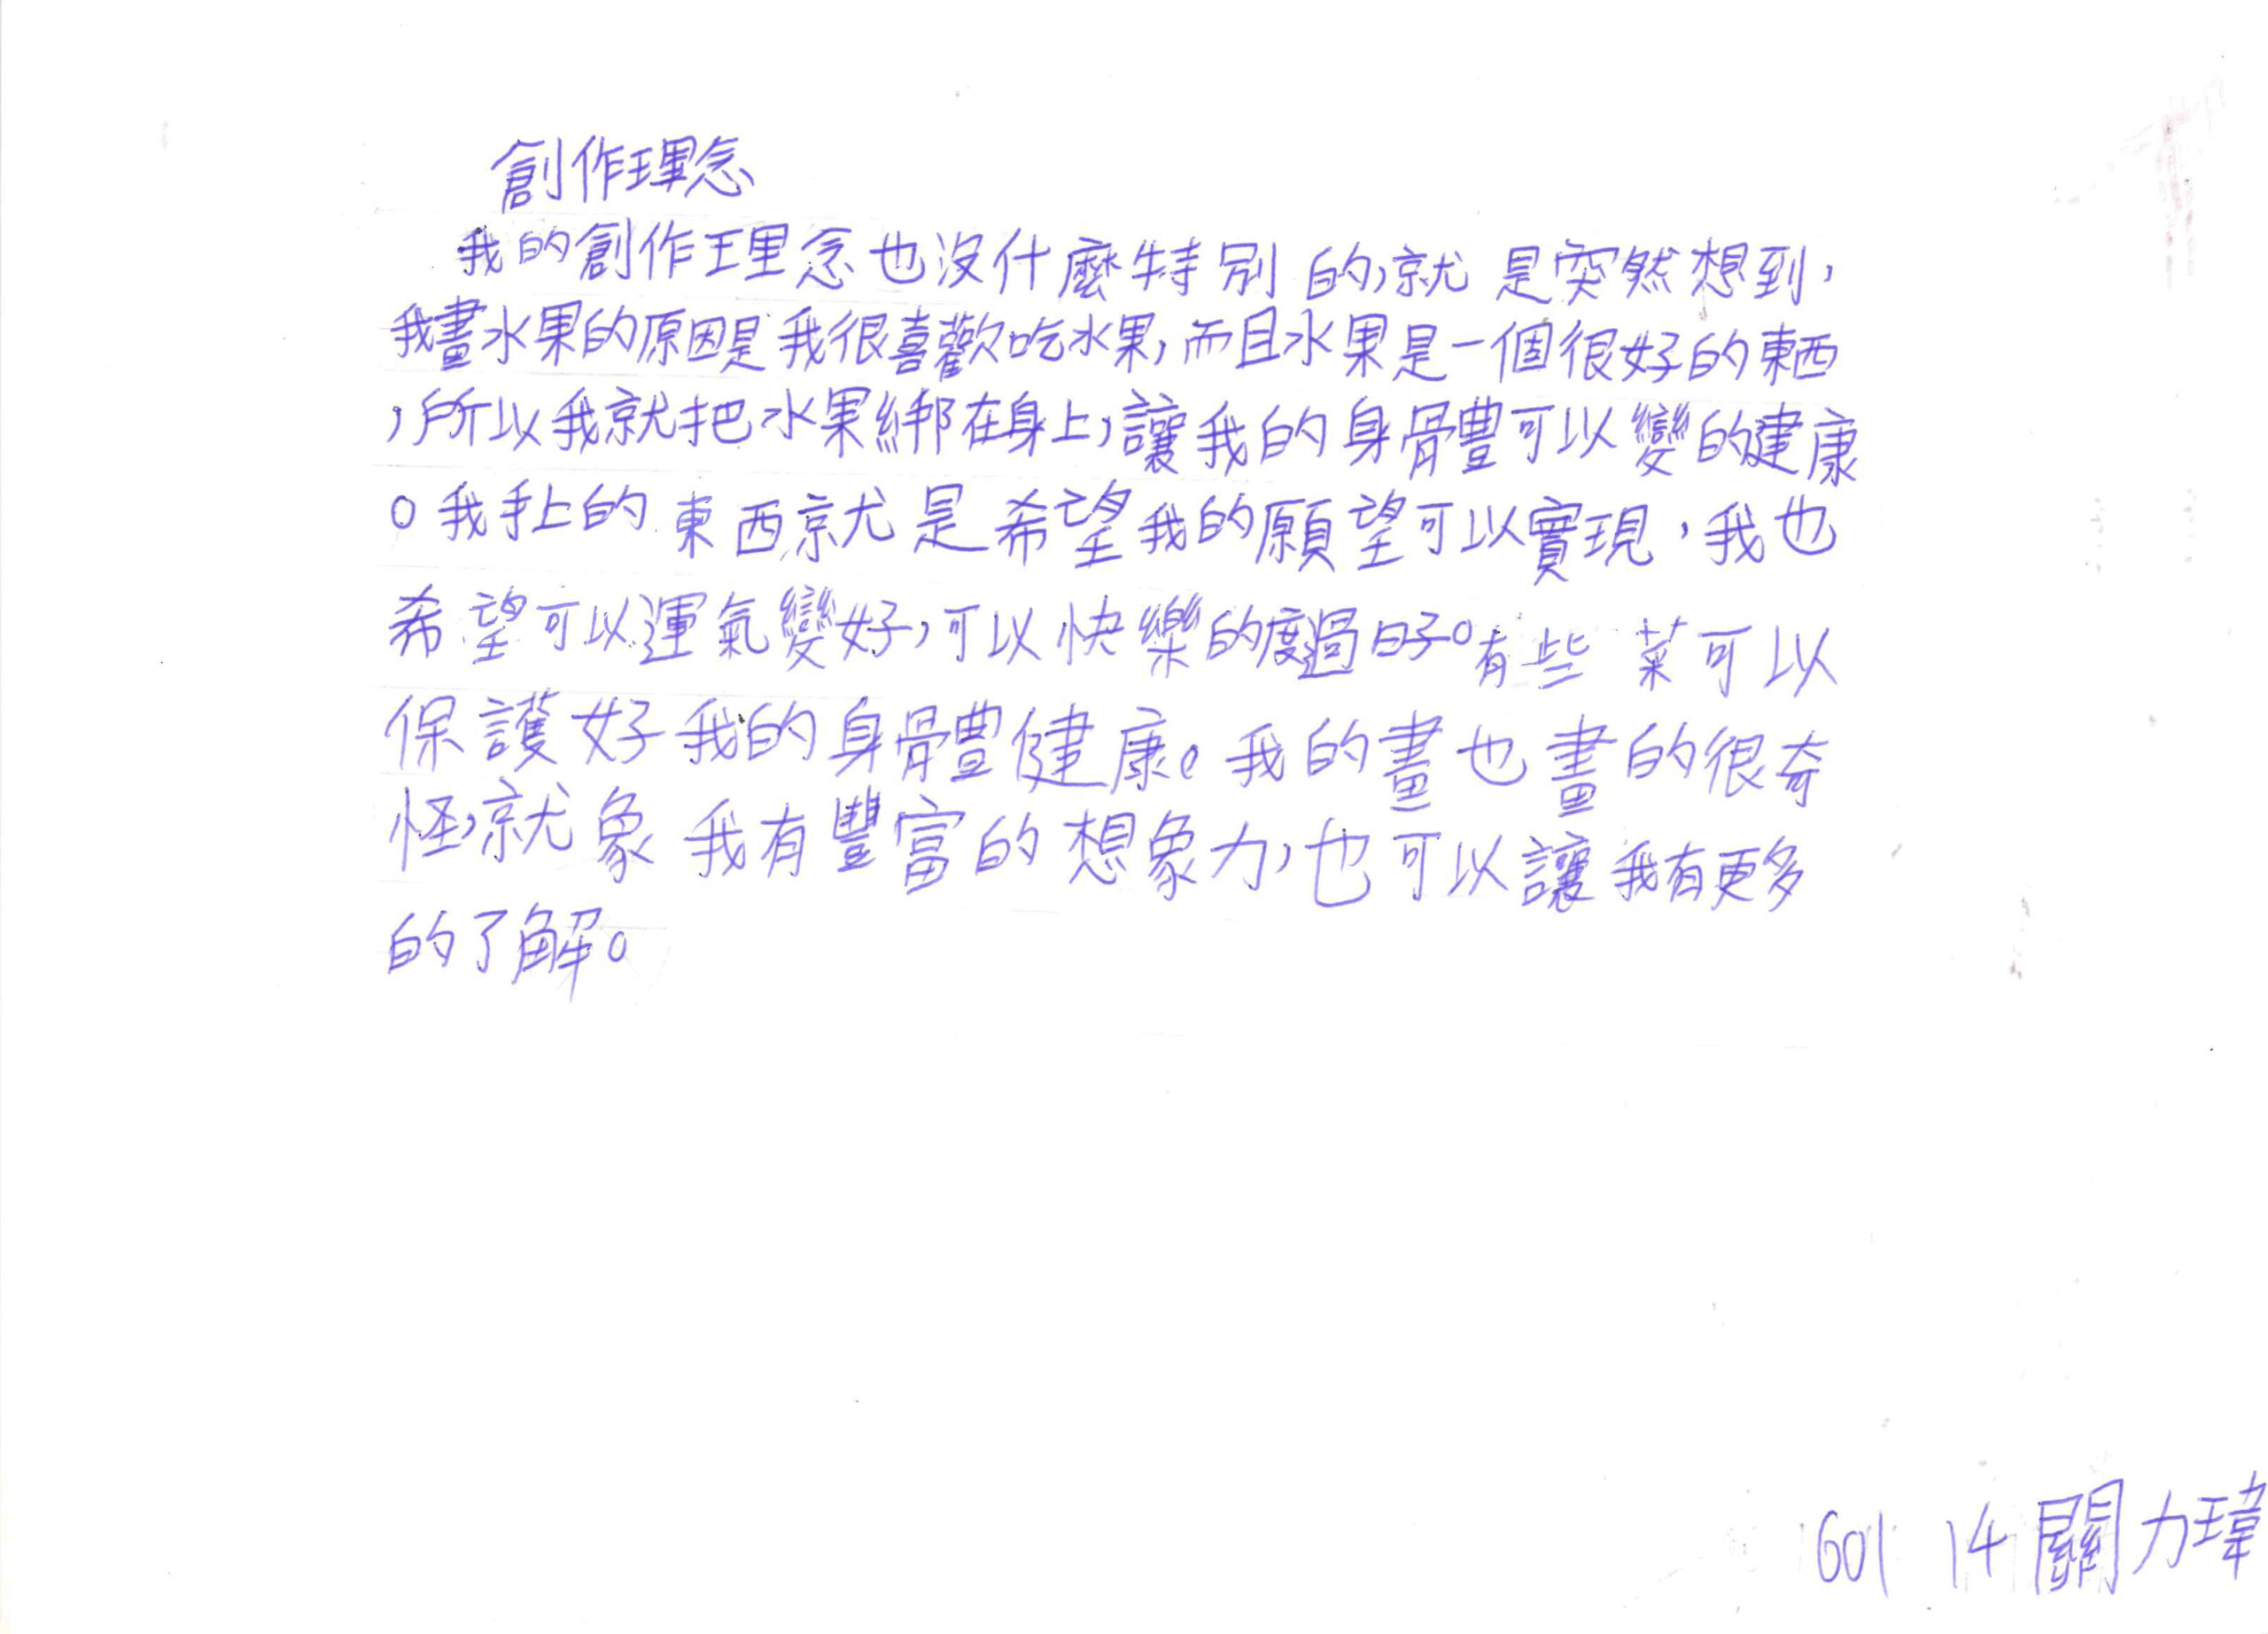 創作理念
我的創作理念也沒什麼特別的,就是突然想到,
我畫水果的原因是我很喜歡吃水果,而且水果是一個很好的東西
,所以我就把水果綁在身上,讓我的身體可以變的健康
。我手上的東西就是希望我的願望可以實現,我也
希望可以運氣變好,可以快樂的度過日子。有些菜可以
保護好我的身體健康。我的畫也畫的很奇
怪,就象我有豐富的想象力,也可以讓我有更多
的了解。
601 14 關力瑋